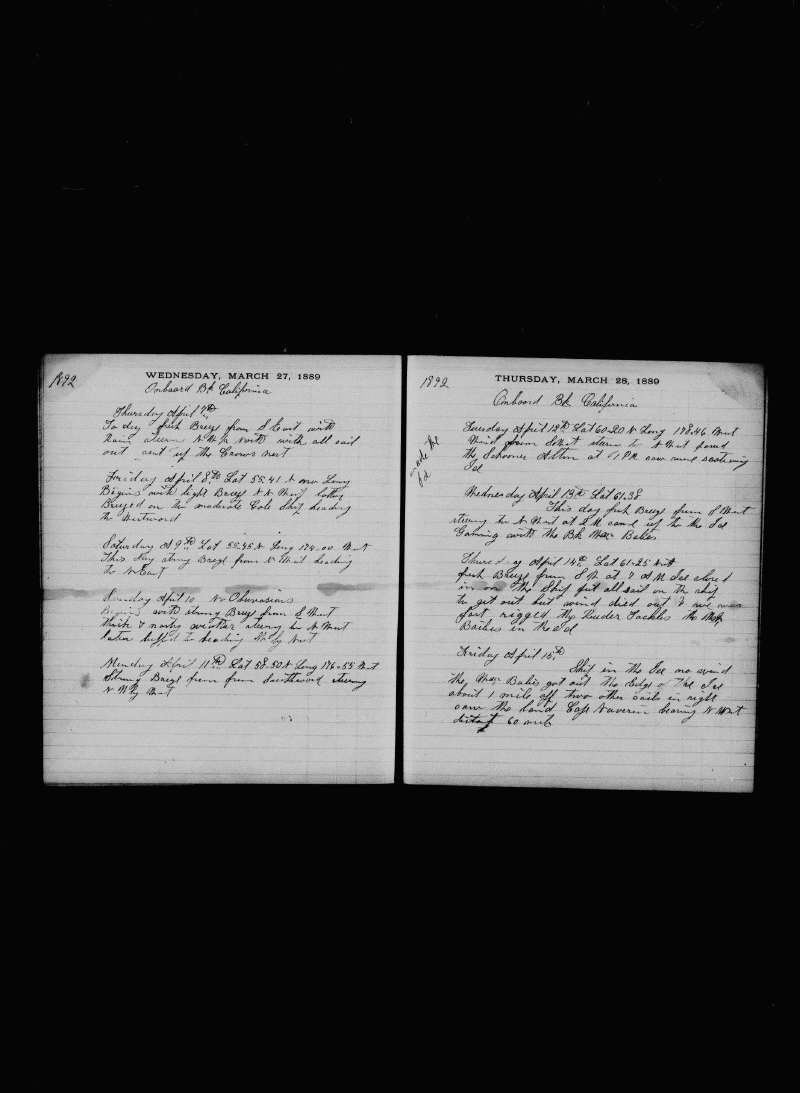 1892
WEDNESDAY, MARCH 27, 1889
Onboard Bk California
Thursday April 7th
To day fresh Breeze from S East with
Rain steering N W by North with all sail
out sent up the Crows nest
Friday April 8th Lat 55.41 N Long
Begins with light Breeze N N West latter
Breezed on to moderate Gale Ship heading
to Westward
Saturday A 9th Lat 55-45 N Long 174-00 West
This day strong Breeze from N West heading
to N East
Sunday April 10 No Obserasions
Begins with strong Breeze from S West
thick & nasty weather steering to N West
Later luffed to heading by West
Monday April 11th Lat 58-50 N Long 176-55 West
Strong Breeze from from Southward steering
N W by West
1892
THURSDAY, MARCH 28, 1889
Onboard Bk California
made the
Ice
Tuesday April 12th Lat 60-20 N Long 178.46 West
Wind from S East steam to N West passed
the Schooner at 1 PM saw some scattering
Ice
Wednesday April 13th Lat 61.38
This day fresh Breeze from S West
steering to N West at 2 M came up to the Ice
Gamming with the Bk Wm Balies
Thursday April 14th Lat 61-25 North
fresh Breeze from S W at 7 A M Ice closed
in on the Ship put all sail on the ship
to get out but wind died out & we was
fast rigged the Ruder Tackles the Wm
Bailies in the Ice
Friday April 15th
Ship in the Ice no wind
the Wm Balies got out the Edge of the Ice
about 1 mile off two other sails in sight
saw the land Cape Navarin bearing N West
distant 60 miles